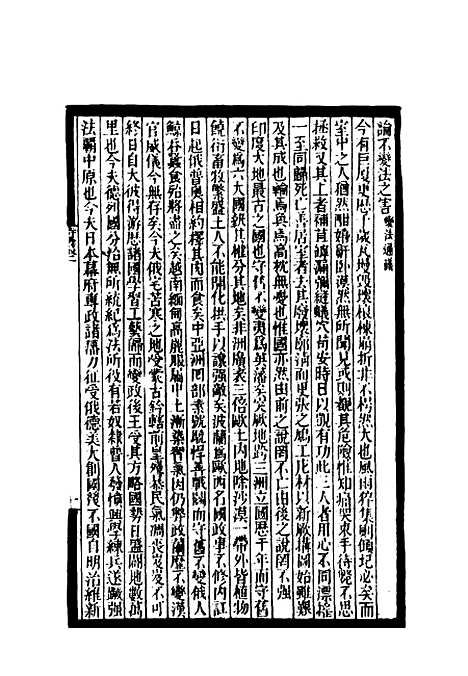 論不變法之害 變法通議
今有巨廈更歷千歲瓦墁毀壞榱棟崩折非不枵然大也風雨猝集則傾圮必矣而
室中之人猶然酣嬉鼾臥漠然無所聞見或則覩其危險惟知痛哭束手待斃不思
拯救又其上者補苴罅漏彌縫蟻穴苟安時日以覬有功此三人者用心不同漂搖
一至同歸死亡善居室者去其廢壞廓清而更張之鳩工庀材以新厥構圖始雖艱
及其成也輪焉奐焉高枕無憂也惟國亦然由前之說罔不亡由後之說罔不強
印度大地最古之國也守舊不變夷爲英藩矣突厥地跨三洲立國歷千年而守舊
不變爲六大國執其權分其地矣非洲廣袤三倍歐土內地除沙漠一帶外皆植物
饒衍畜牧繁盛土人不能開化拱手以讓強敵矣波蘭爲歐西名國政事不修內訌
日起俄普奧相約擇其肉而食矣中亞洲回部素號驍悍善戰鬭而守舊不變俄人
鯨吞蠶食殆將盡之矣越南緬甸高麗服屬中土漸染習氣因仍弊政薾靡不變漢
官威儀今無存矣今夫俄宅苦寒之地受蒙古鈐轄前皇殘暴民氣凋喪岌岌不可
終日自大彼得游歷諸國學習工藝歸而變政後王受其方略國勢日盛闢地數萬
里也今夫德列國分治無所統紀爲法所役有若奴隸普人發憤興學練兵遂蹶強
法霸中原也今夫日本幕府專政諸藩力征受俄德美大創國幾不國自明治維新